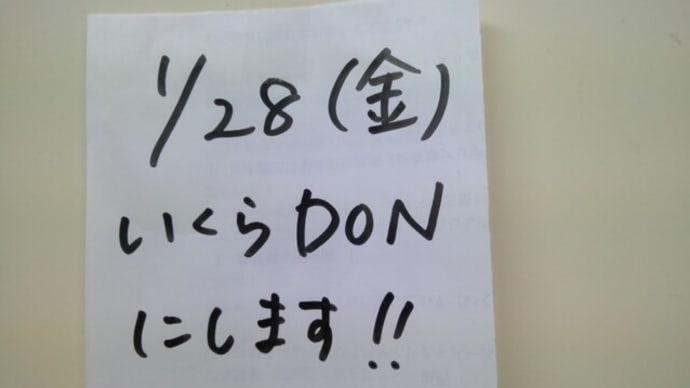 1/28(金)
いくらDON
にします!!